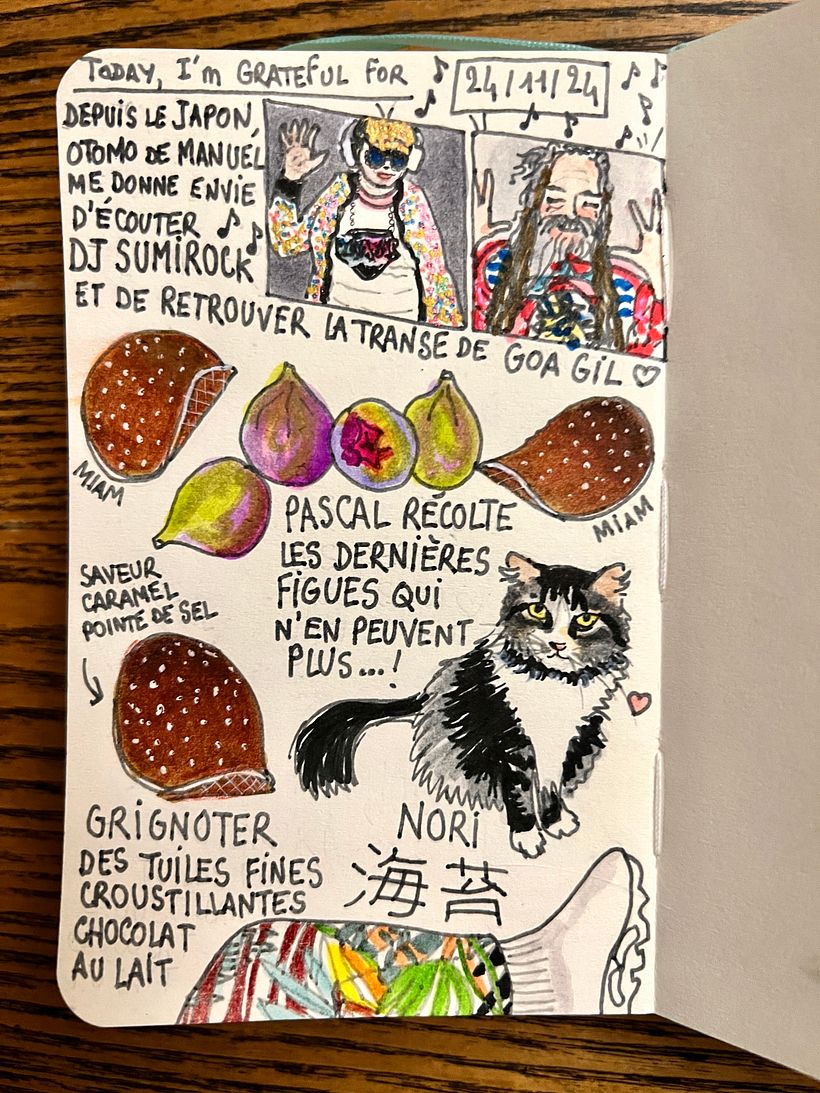 TODAY, I'm GRATEFUL FOR
24/11/24
DEPUIS LE JAPON,
OTOMO DE MANUEL
ME DONNE ENVIE
D'ÉCOUTER
DJ SUMIROCK
ET DE RETROUVER LA TRANSE DE GOA GIL
MIAM
MIAM
PASCAL RÉCOLTE
LES DERNIÈRES
FIGUES QUI
N'EN PEUVENT
PLUS...!
SAVEUR
CARAMEL
POINTE DE SEL
NORI
海苔
GRIGNOTER
DES TUILES FINES
CROUSTILLANTES
CHOCOLAT
AU LAIT